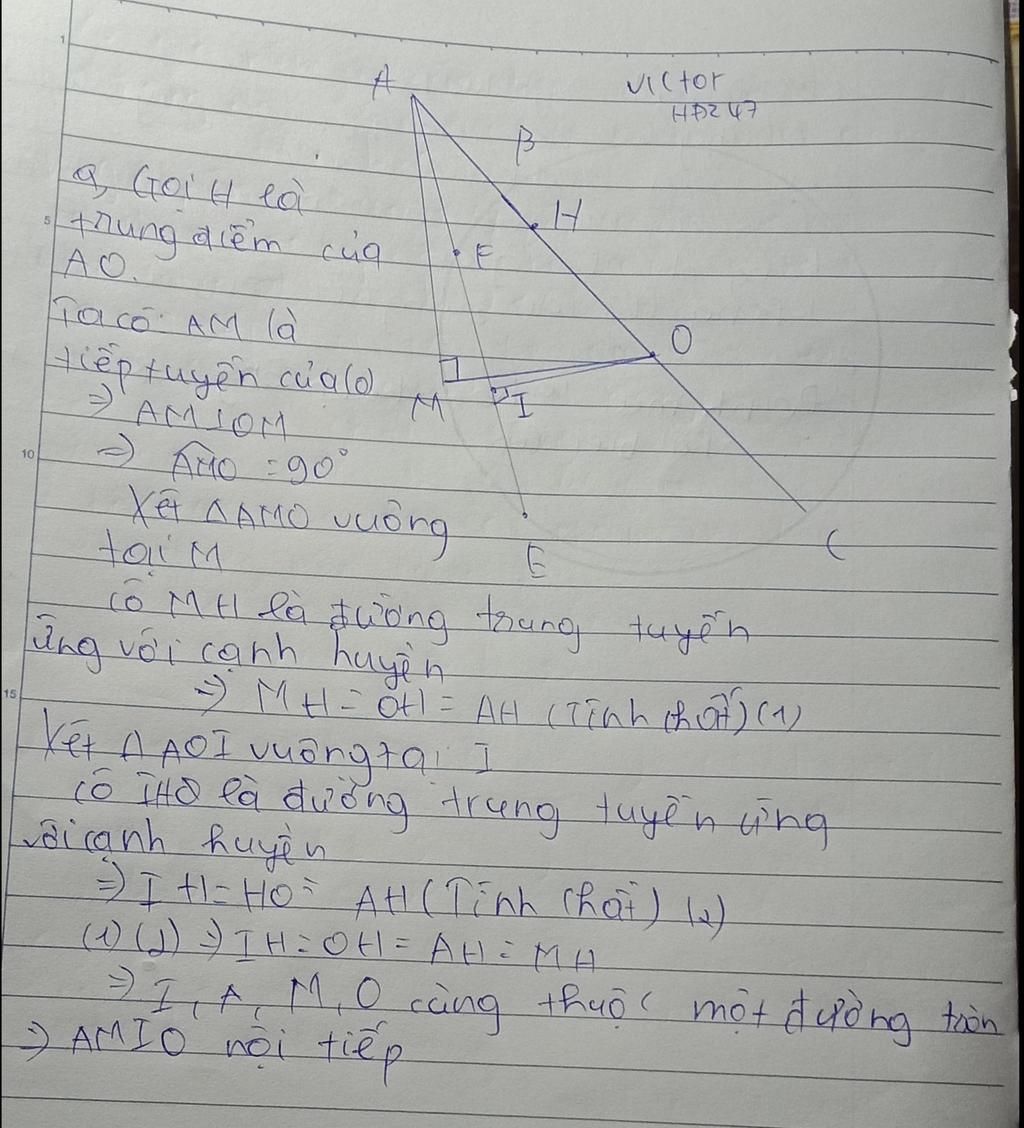 A
Victor
HĐZ 47
B
a, Gọi H là
trung điểm của
AO.
H
F
Ta có: AM là
tiếp tuyến của (O)
O
M
I
=> AM⊥OM
=> AMO = 90°
Xét ΔAMO vuông
tại M
E
C
có MH là đường trung tuyến
ứng với cạnh huyền
=> MH = OH = AH (Tính chất) (1)
Xét Δ AOI vuông tại I
có IHO là đường trung tuyến ứng
với cạnh huyền
=> IH = HO = AH (Tính chất) (2)
(1) (2) => IH = OH = AH = MH
=> I, A, M, O cùng thuộc một đường tròn
=> AMIO nội tiếp
1
5
10
15